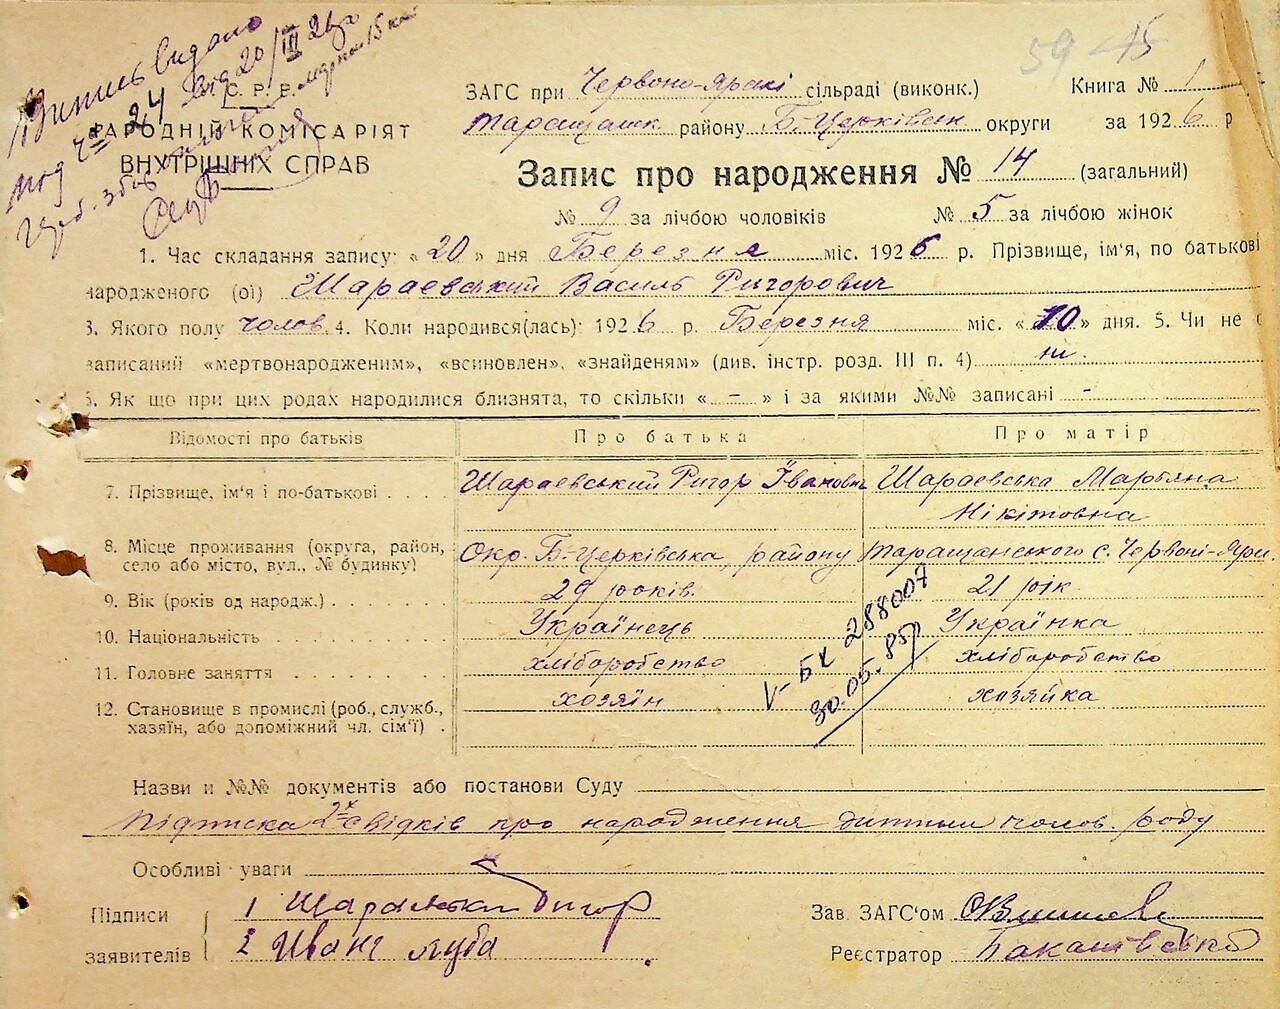 59 45
Витись видано
под № 24 від 20/III 26р
У.С.Р.Р.
НАРОДНІЙ КОМІСАРІЯТ
ВНУТРІШНІХ СПРАВ
ЗАГС при Червоно-Ярській сільраді (виконк.) Книга № 1
Таращанськ району Б-Церківськ округи за 1926 р
Запис про народження № 14 (загальний)
№ 9 за лічбою чоловіків № 5 за лічбою жінок
1. Час складання запису: « 20 » дня Березня міс. 1926 р. Прізвище, ім'я, по батькові
народженого (ої) Шараевський Василь Ригорович
3. Якого полу чолов. 4. Коли народився(лась): 1926 р. Березня міс. « 10 » дня. 5. Чи не є
записаний «мертвонародженим», «всиновлен», «знайденям» (див. інстр. розд. III п. 4) ні.
6. Як що при цих родах народилися близнята, то скільки « - » і за якими №№ записані -
Відомості про батьків Про батька Про матір
7. Прізвище, ім'я і по-батькові Шараевський Ригор Іванович Шараевська Марьяна
Нікітовна
8. Місце проживання (округа, район, Окр. Б-Церківська, району Таращанського с. Червоні-Яри.
село або місто, вул., № будинку)
9. Вік (років од народж.) 29 років. 21 рік
10. Національність Українець Українка
11. Головне заняття хліборобство хліборобство
12. Становище в промислі (роб., служб., хозяїн хозяйка
хазяїн, або допоміжний чл. сім'ї)
V-БК 288007
30.05.85р
Назви и №№ документів або постанови Суду
Підписка 2х свідків про народження дитини чолов. роду
Особливі уваги
Підписи 1 Шараевский Ригор Зав. ЗАГС'ом
заявителів 2 Иванъ Куба Реєстратор